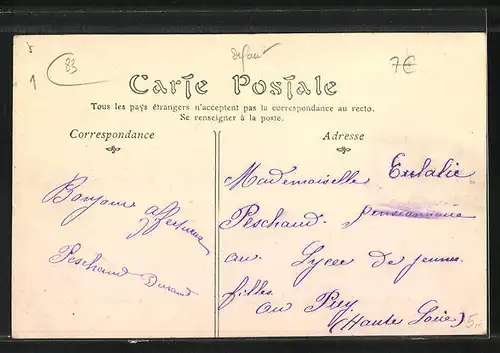 83
defaut
7€
1
Carte Postale
Tous les pays étrangers n'acceptent pas la correspondance au recto.
Se renseigner à la poste.
Correspondance
Adresse
Bonjour affectueux
Peschaud Durand
Mademoiselle Eulalie
Peschaud pensionnaire
au Lycée de jeunes
filles
au Puy
(Haute Loire)
5.-